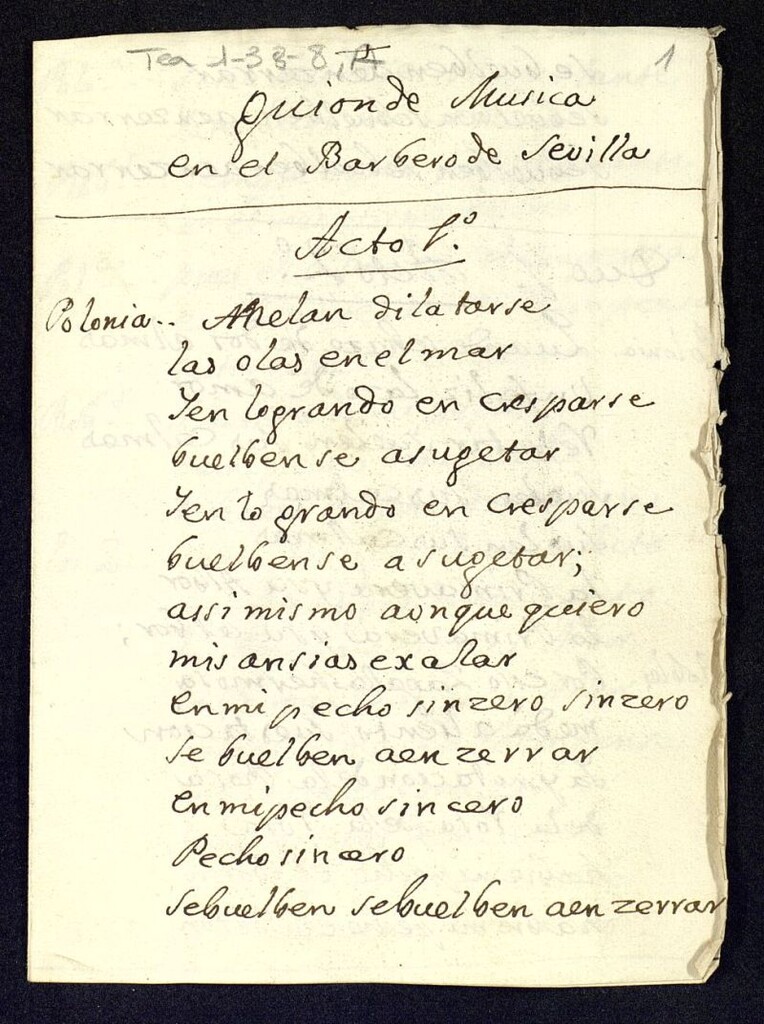 Tea 1-33-8, A
1
guion de Musica
en el Barbero de Sevilla
Acto 1.º
Polonia.. Anelan dilatarse
las olas en el mar
Y en logrando en cresparse
buelbense a sugetar
Y en lo grando en cresparse
buelbense a sugetar;
assi mismo aonque quiero
mis ansias exalar
en mi pecho sinzero sinzero
se buelben a en zerrar
en mi pecho sincero
Pecho sincero
se buelben se buelben a en zerrar